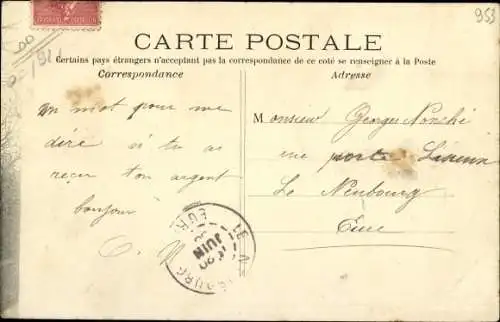 955
CARTE POSTALE
Certains pays étrangers n'acceptant pas la correspondance de ce coté se renseigner à la Poste
Correspondance
Adresse
un mot pour me
dire si tu as
reçu ton argent
bonjour
Monsieur Georges
rue porte Lisieux
Le Neubourg
Eure
JUIN